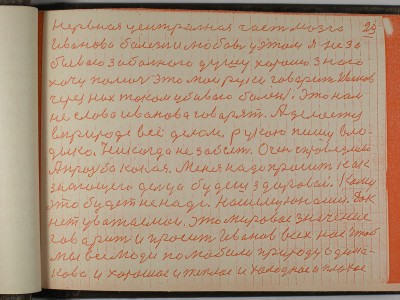 23
Нервная центральная часть мозга
Иванова болезни любови у этом я не за
бываю забочного душу хорошо знаю
хочу помоч Это мои руки говорит Иванов
через них током убиваю болен. Это нам
не слова Иванова говорят. А делает
в природе всё делом, рукою пишу вла-
дыко. Никогда не забыт. Очен справедливо
А просьба какая. Меня надо просит как
знающего делца будеш здоровый. Кому
это будет не надо. Нашим юношам. Док
нет уважаемой. Это мировое значение
говорит и просит Иванов всех нас чтоб
мы все люди полюбили природу одина-
ково, и хорошое и теплое и холодное и плохое